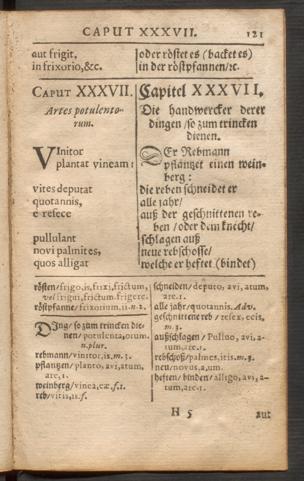 CAPUT XXXVII. 121
aut frigit,
in frixorio,&c.
oder röstet es (backet es)
in der röstpfannen/ꝛc.
CAPUT XXXVII.
Artes potulento-
rum.
VInitor
plantat vineam:
vites deputat
quotannis,
e resece
pullulant
novi palmites,
quos alligat
Capitel XXXVII.
Die handwercker derer
dingen/so zum trincken
dienen.
DEr Rebmann
pflantzet einen wein-
berg:
die reben schneidet er
alle jahr/
auß der geschnittenen re-
ben/oder dem knecht/
schlagen auß
neue rebschosse/
welche er heftet (bindet)
rösten/frigo,is,frixi,frictum,
vel frigui, frictum, frigere.
röstpfanne/frixorium,ii.n.2.
DIng/so zum trincken die-
nen/potulenta,orum.
n.plur.
rebmann/vinitor,is.m.3.
pflantzen/planto,avi,atum,
are.1.
weinberg/vinea,eæ.f.1.
reb/vitis,is.f.
schneiden/deputo,avi,atum,
are.1.
alle jahr/quotannis. Adv.
geschnittene reb/resex,ecis,
m.3.
außschlagen/Pullulo,avi,a-
tum,are.1.
rebschoß/palmes,itis.m.3.
neu/novus,a,um.
heften/binden/alligo,avi,a-
tum,are.1.
H 5 aut